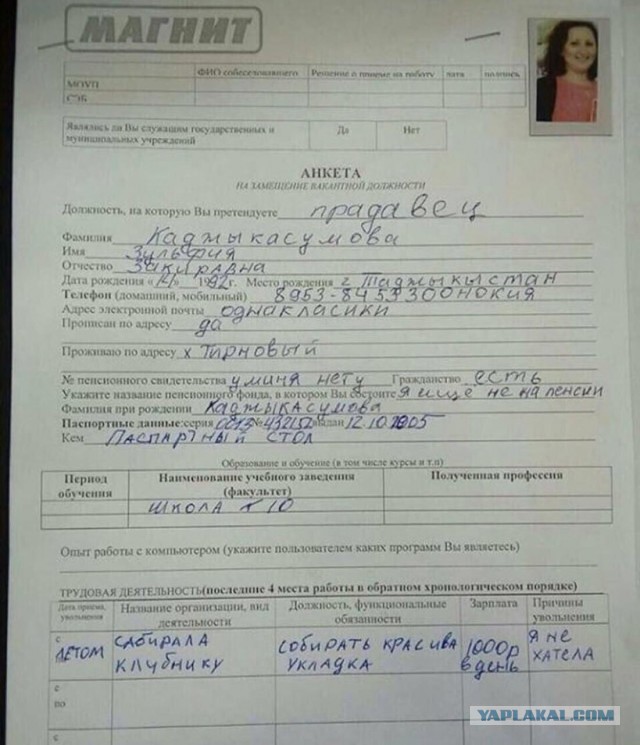 МАГНИТ
ФИО собеседовавшего Решение о приеме на работу дата подпись
МОУП
СЭБ
Являлись ли Вы служащим государственных и муниципальных учреждений Да Нет
АНКЕТА
НА ЗАМЕЩЕНИЕ ВАКАНТНОЙ ДОЛЖНОСТИ
Должность, на которую Вы претендуете прадавец
Фамилия Каджыкасумова
Имя Зульфия
Отчество Закиравна
Дата рождения «14» 1992г. Место рождения г Таджыкыстан
Телефон (домашний, мобильный) 8953-8453300нокия
Адрес электронной почты однакласики
Прописан по адресу да
Проживаю по адресу х Тирновый
№ пенсионного свидетельства у миня нету Гражданство есть
Укажите название пенсионного фонда, в котором Вы состоите я ище не на пенсии
Фамилия при рождении Каджыкасумова
Паспортные данные: серия № выдан 12.10.2005
Кем Паспартный стол
Образование и обучение (в том числе курсы и т.п)
Период обучения Наименование учебного заведения (факультет) Полученная профессия
школа 10
Опыт работы с компьютером (укажите пользователем каких программ Вы являетесь)
ТРУДОВАЯ ДЕЯТЕЛЬНОСТЬ(последние 4 места работы в обратном хронологическом порядке)
Дата приема, увольнения Название организации, вид деятельности Должность, функциональные обязанности Зарплата Причины увольнения
с летом сабирала клубнику собирать красива укладка 1000р в день я не хатела
с
по
с
YAPLAKAL.COM